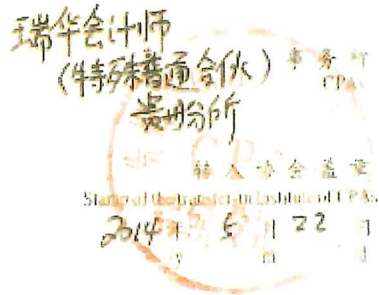 瑞华会计师
(特殊普通合伙) 事务所
CPAs
贵州分所
转入协会盖章
Stamp of the transfer-in Institute of CPAs
2014年 5月 22日
y m d